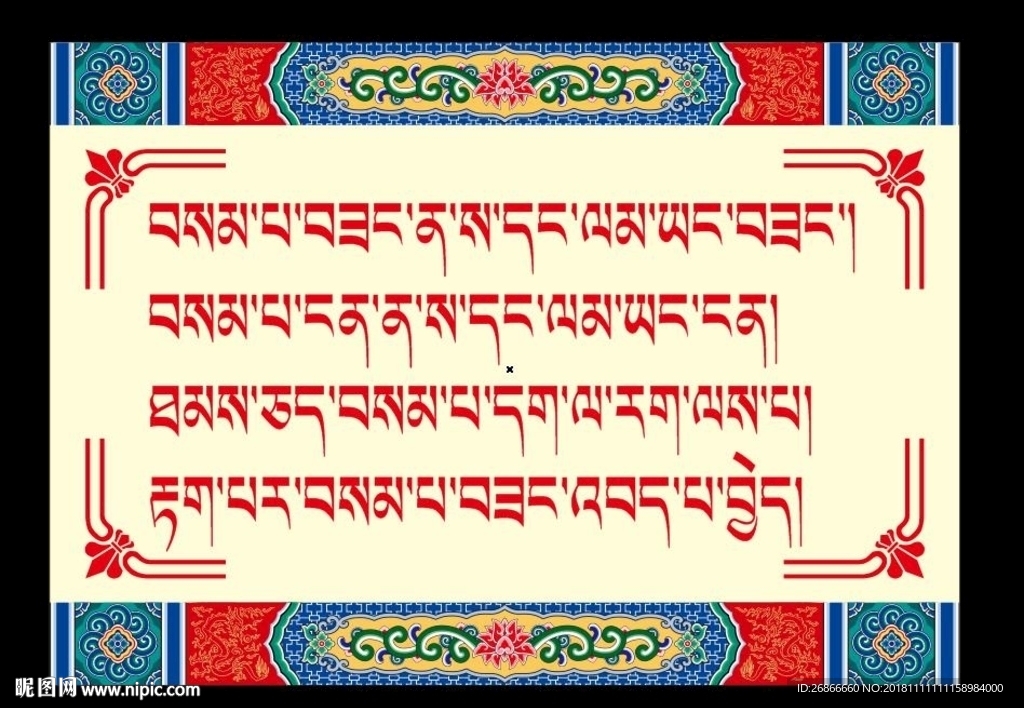 བསམ་པ་བཟང་ན་ས་དང་ལམ་ཡང་བཟང་།
བསམ་པ་ངན་ན་ས་དང་ལམ་ཡང་ངན།
ཐམས་ཅད་བསམ་པ་དག་ལ་རག་ལས་པ།
རྟག་པར་བསམ་པ་བཟང་འབད་པ་བྱེད།
昵图网 www.nipic.com
ID:26866660 NO:20181111111158984000